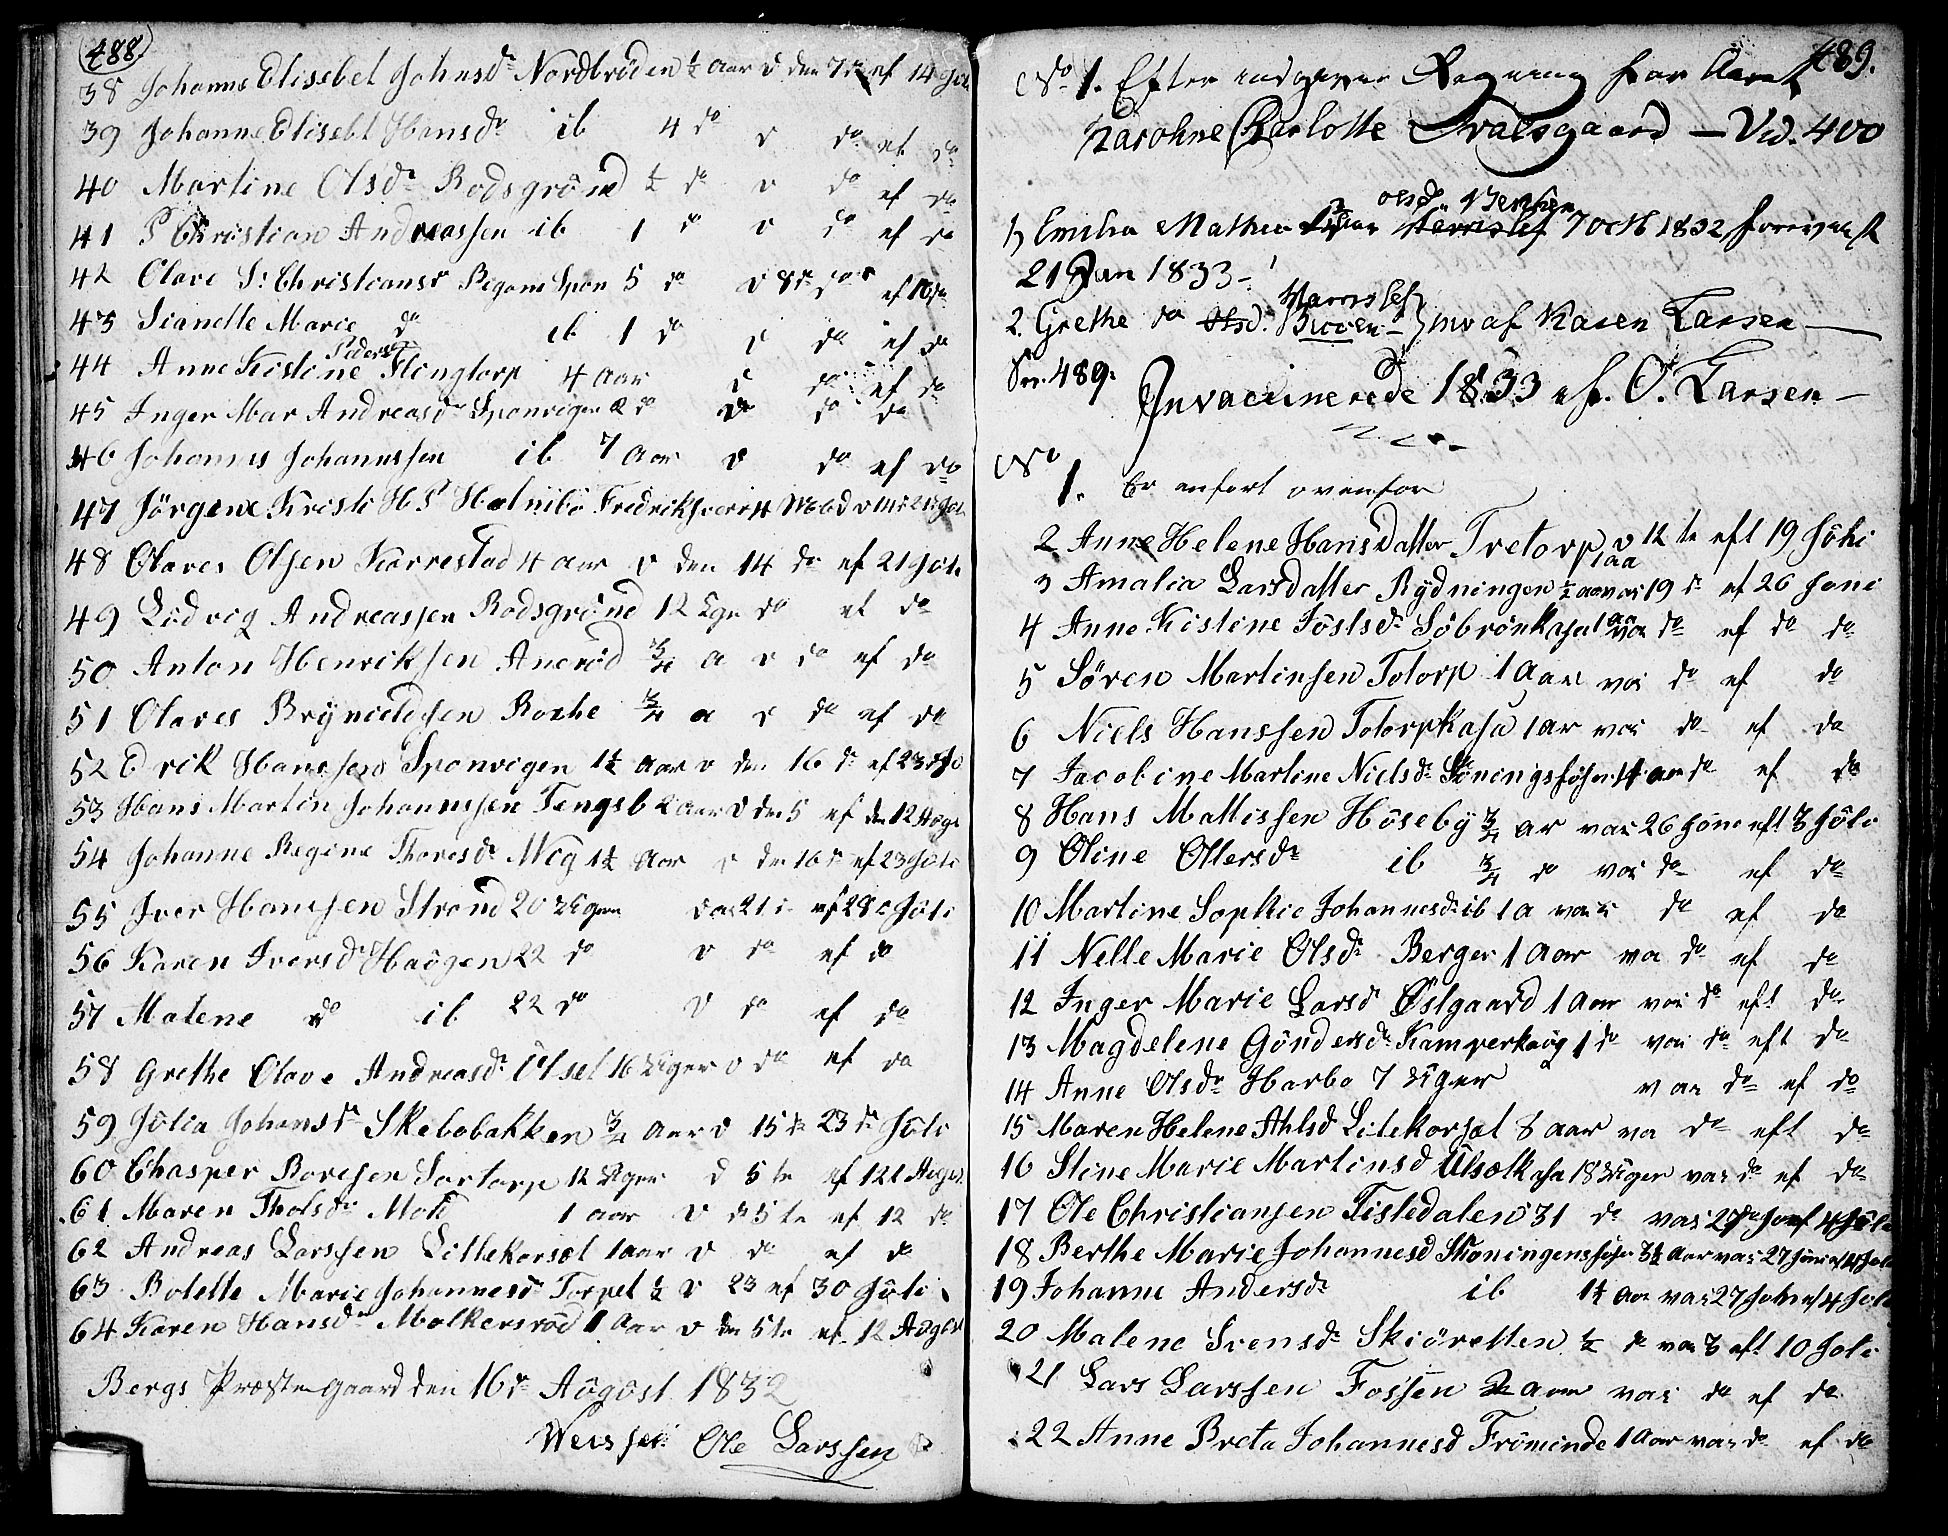 488
38 Johanne Elisebet Johnsd. Nordbröden ½ Aar v den 7de ef 14 Juli
39 Johanne Elisebt Hansdr ib 4 do v do ef do
40 Martine Olsdr Rodsgrönd ½ do v do ef do
41 P Christian Andreassen ib 1 do v do ef do
42 Olave S: Christiansd 5 do v 8de ef
43 Sianette Marie do ib 1 do v do ef do
44 Anne Kistine Pedersd Flingtorp 4 Aar v do ef do
45 Inger Mar Andreasdr Sponvigen 2 do v do do
46 Johannes Johannessen ib 7 Aar v do ef do
47 Jörgene Kristi H Holnibö
48 Olaves Olsen Karrestad 4 aar v den 14 do ef 21 Juli
49 Lüdvig Andreassen Rodsgrönd 12 Ugr do ef do
50 Anton Henriksen Anerød ¾ a v do ef do
51 Olaves Brynieldsen ¾ a v do ef do
52 Erik Hanssen Sponvigen 1½ aar v den 16 de ef 23
53 Hans Martin Johannessen Tengsb 2 aar v den 5 ef den 12 Aug
54 Johanne Regine Thoresdr Wig 1½ Aar v den 16 de ef 23 Juli
55 Iver Hanssen Strand 20 Uger 21 ef 28 Juli
56 Karen Iversdr Haugen 22 do v do ef do
57 Malene do ib 22 do v do ef do
58 Grethe Olave Andreasdr Ulsel 16 Uger v do ef do
59 Julia Johansdr Skebobakken ¾ Aar v 15de 23de Juli
60 Chasper Boresen Sortorp 12 Uger v 5te ef 12t August
61 Maren Tholsdr Moe 1 aar v d 5te ef 12 do
62 Andreas Larssen Lillekorset 1 aar v do ef do
63 Bolette Marie Johannesd Torpet ½ v 23 ef 30 Juli
64 Karen Hansdr Molkersrød 1 Aar v den 5te ef 12 August
Bergs Præstegaard den 16de August 1832
Ole Larssen
489.
No 1. Efter indgiven Regning for Aaret
Karoline Charlotte Svalesgaard — Vid. 400
olsdr Berthen
1) Emilia Mathea 7 Oct 1832 forevist
21 Jan 1833 —
2. Grethe do af Karen Larsen —
No. 489. Invaccinerede 1833 af O. Larsen —
No
1. Er anfört ovenfor
2 Anne Helene Hansdatter Tretorp 1 aa v 12te eft 19 Juni
3 Amalia Larsdatter Rydningen ½ aar va 19 de ef 26 Juni
4 Anne Kistine Jöstsdr Söbrönkasa 1 aa va do ef do do
5 Sören Martinsen Totorp 1 Aar va do ef do
6 Niels Hanssen Totorpkasa 1 ar va do ef do
7 Jacobine Martine Nielsdr Skoningsfossen 14 aar do ef do
8 Hans Mattissen Höseby ¾ ar va 26 Juni eft 3 Juli
9 Oline Ollersdr ib ¾ do va do ef do
10 Martine Sophie Johannesdr ib 1 a va do ef do
11 Nelle Marie Olsdr Berger 1 Aar va do ef do
12 Inger Marie Larsd Østgaard 1 Aar va do eft do
13 Magdelene Göndersdr Kamperhaug 1 do va do eft do
14 Anne Olsdr Harbo 7 Uger va do ef do
15 Maren Helene Athlsd Litekorset 8 aar va do eft do
16 Stine Marie Martinsd Ulsælkasa 18 Uger va do ef do
17 Ole Christiansen Tistedalen 31 do va 27 de Jun ef 4 Juli
18 Berthe Marie Johannesd Skoningensfossen 3½ aar va 27 Juni ef 4 Juli
19 Johanne Andersdr ib 1½ Aar va 27 Jun ef 4 Juli
20 Malene Svensdr Skiöretten ½ do va 3 eft 10 Juli
21 Lars Larssen Fossen 2 aar va do ef do
22 Anne Breta Johannesd Frömende 1 Aar va do ef do